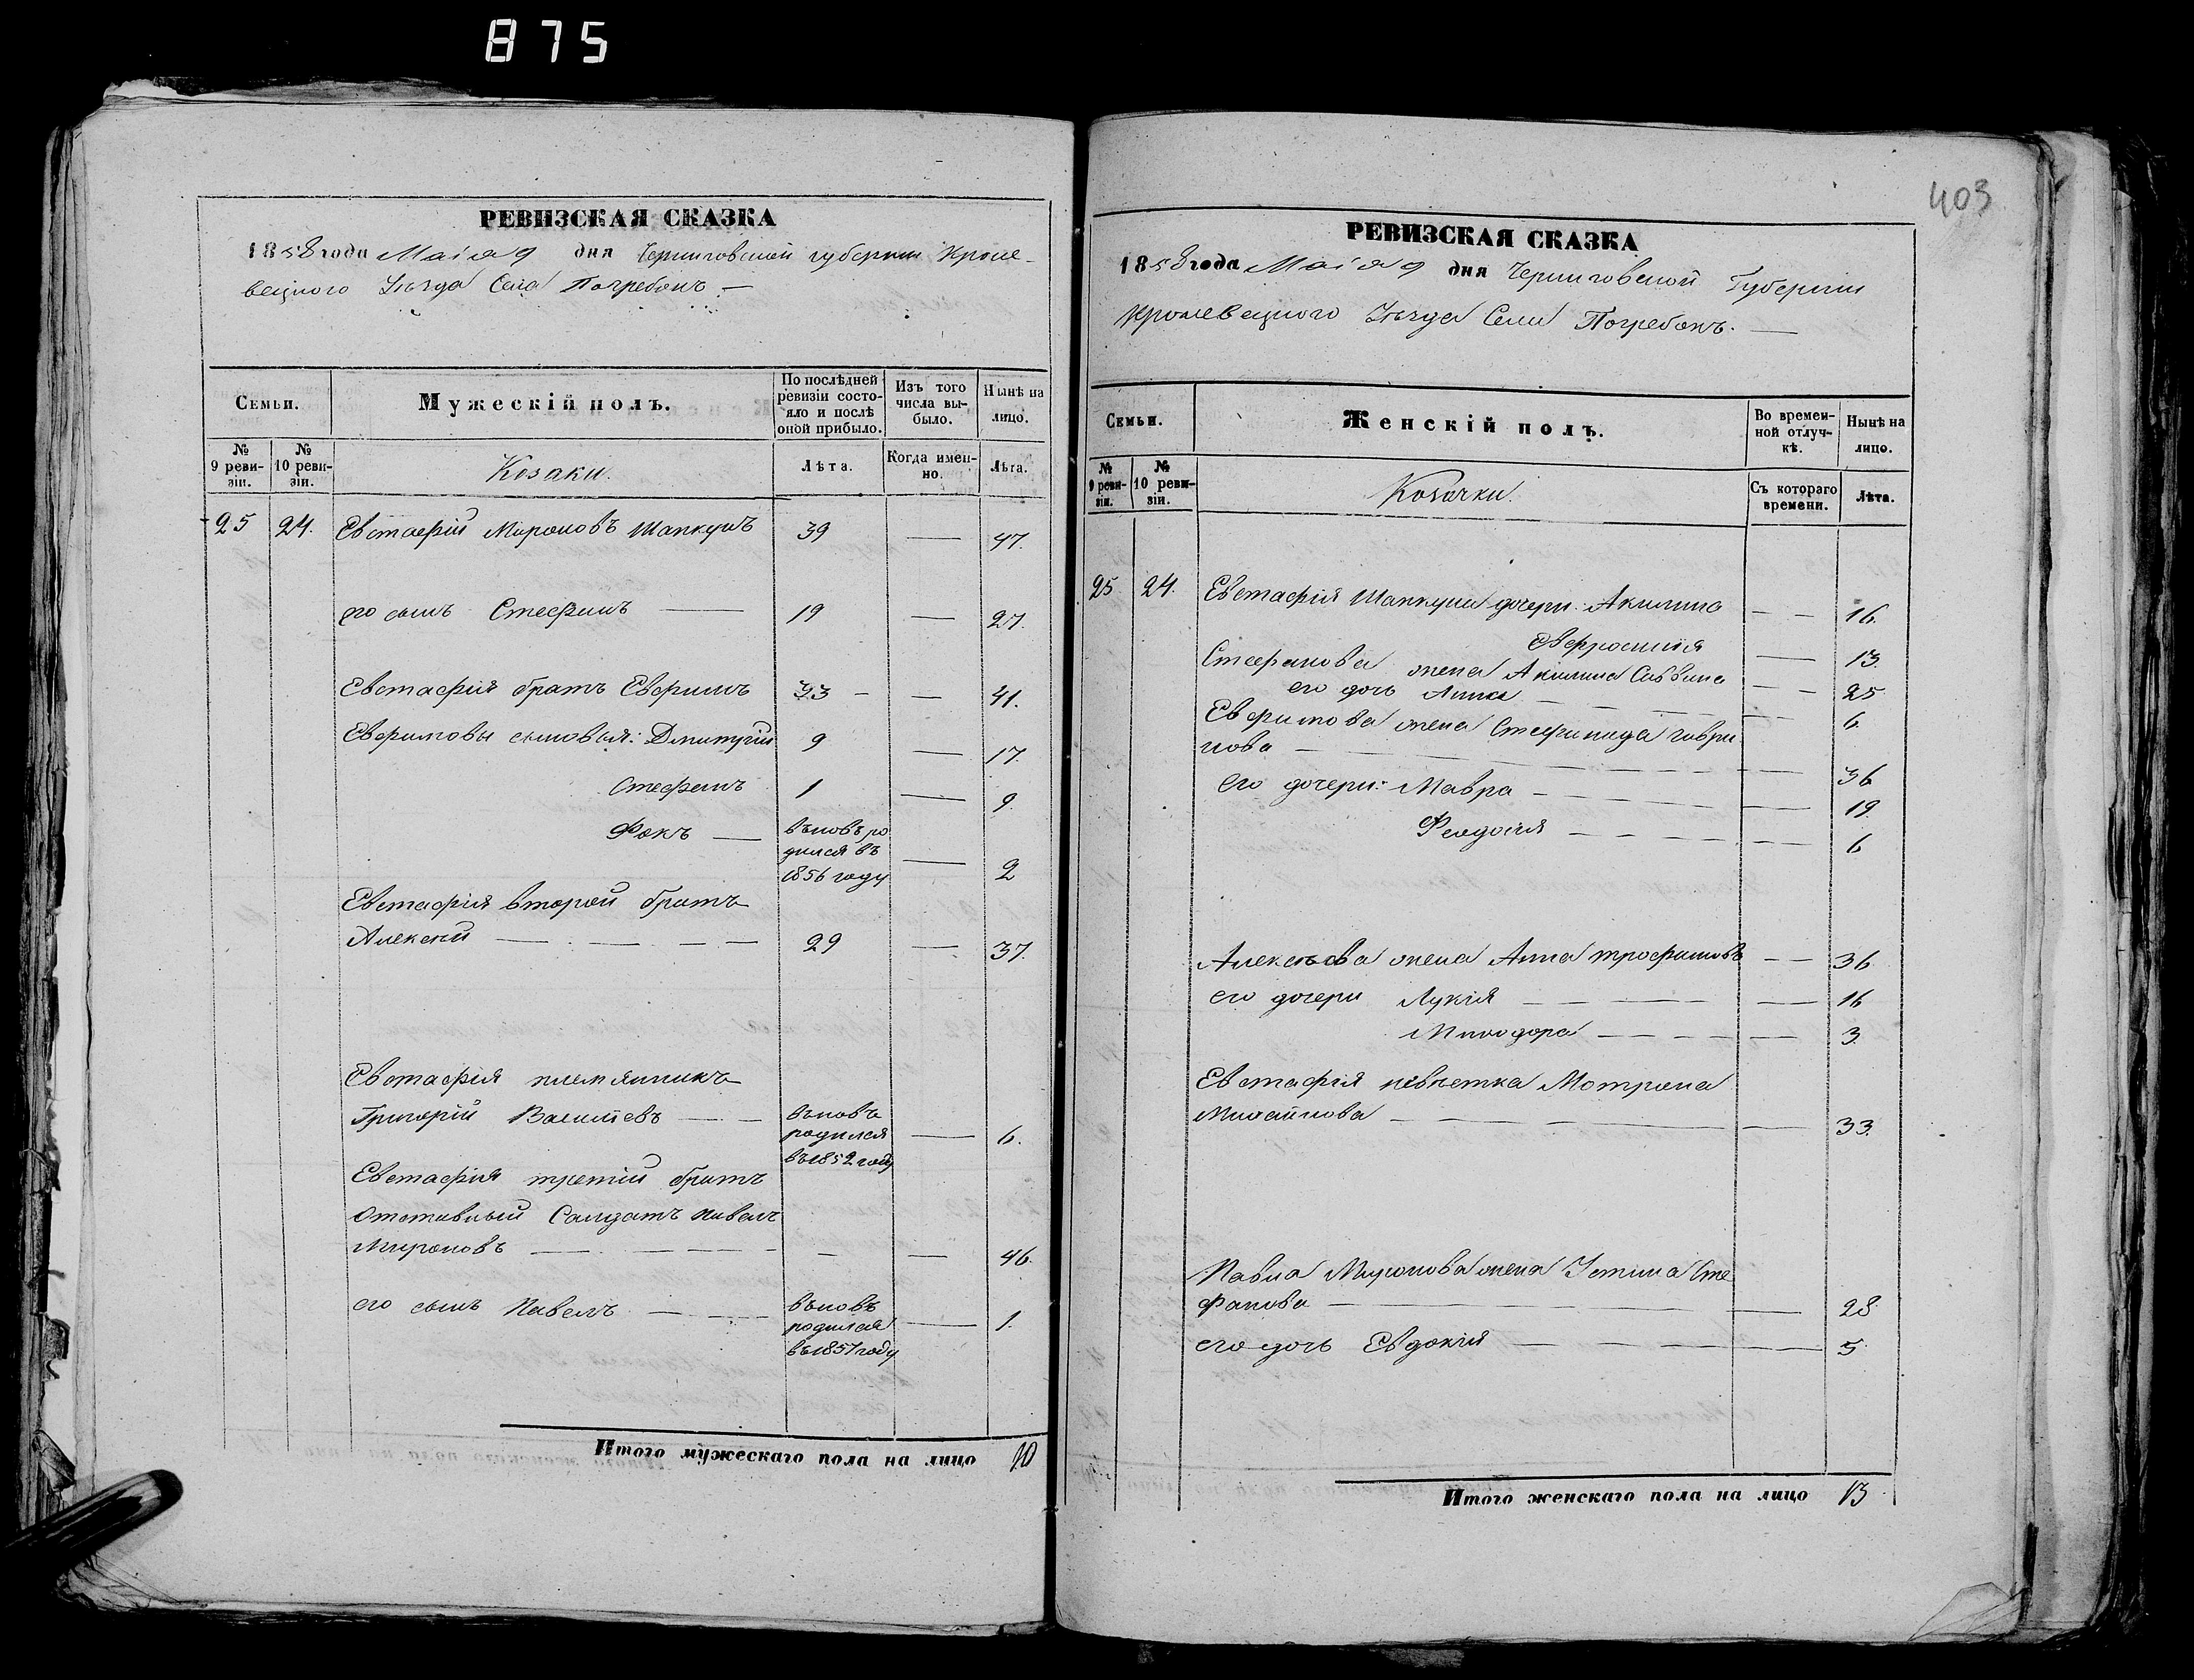 875
РЕВИЗСКАЯ СКАЗКА
1858 года Маія 9 дня Черниговской губерніи Кроле-
вецкого Уѣзда Села Погребокъ —
Семьи.
Мужескій полъ.
По послѣдней ревизіи состояло и послѣ оной прибыло.
Изъ того числа выбыло.
Нынѣ на лицо.
№ 9 ревизіи.
№ 10 ревизіи.
Козаки.
Лѣта.
Когда именно.
Лѣта.
25 24. Евстафій Мироновъ Шапкунъ 39 — 47.
его сынъ Стефанъ — 19 — 27.
Евстафія братъ Ефримъ 33 — — 41.
Евфимовы сыновья: Дмитрій 9 — 17.
Стефанъ 1 — 9
Фокъ — вновь ро
дился въ
1856 году — 2
Евстафія второй братъ
Алексѣй — — — — 29 — 37.
Евстафія племянникъ
Григорій Васильевъ — — вновь
родился
въ 1852 году — 6.
Евстафія третій братъ
Отставный Солдатъ Павелъ
Мироновъ — — — — — — 46.
его сынъ Павелъ — — вновь
родился
въ 1857 году — 1.
Итого мужескаго пола на лицо 10
403
РЕВИЗСКАЯ СКАЗКА
1858 года Маія 9 дня Черниговской Губерніи
Кролевецкого Уѣзда Села Погребокъ. —
Семьи.
Женскій полъ.
Во временной отлучкѣ.
Нынѣ на лицо.
№ 9 ревизіи.
№ 10 ревизіи.
Козачки.
Съ котораго времени.
Лѣта.
25 24. Евстафія Шапкуна дочери: Акилина — — 16.
Евфросинія — 13
Стефанова жена Акилина Саввина — — 25
его дочь Анна — — — — 6
Евфимова жена Стефанида Гаври
лова — — — — 36
его дочери: Мавра — — — — 19.
Феодосія — — — — 6
Алексѣева жена Анна Трофимовъ — — 36
его дочери Лукія — — — — 16
Минодора — — — — 3
Евстафія невѣстка Мотрона
Михайлова — — — — 33.
Павла Миронова жена Устина Сте
фанова — — — 28.
его дочь Евдокія — — — — 5.
Итого женскаго пола на лицо 13